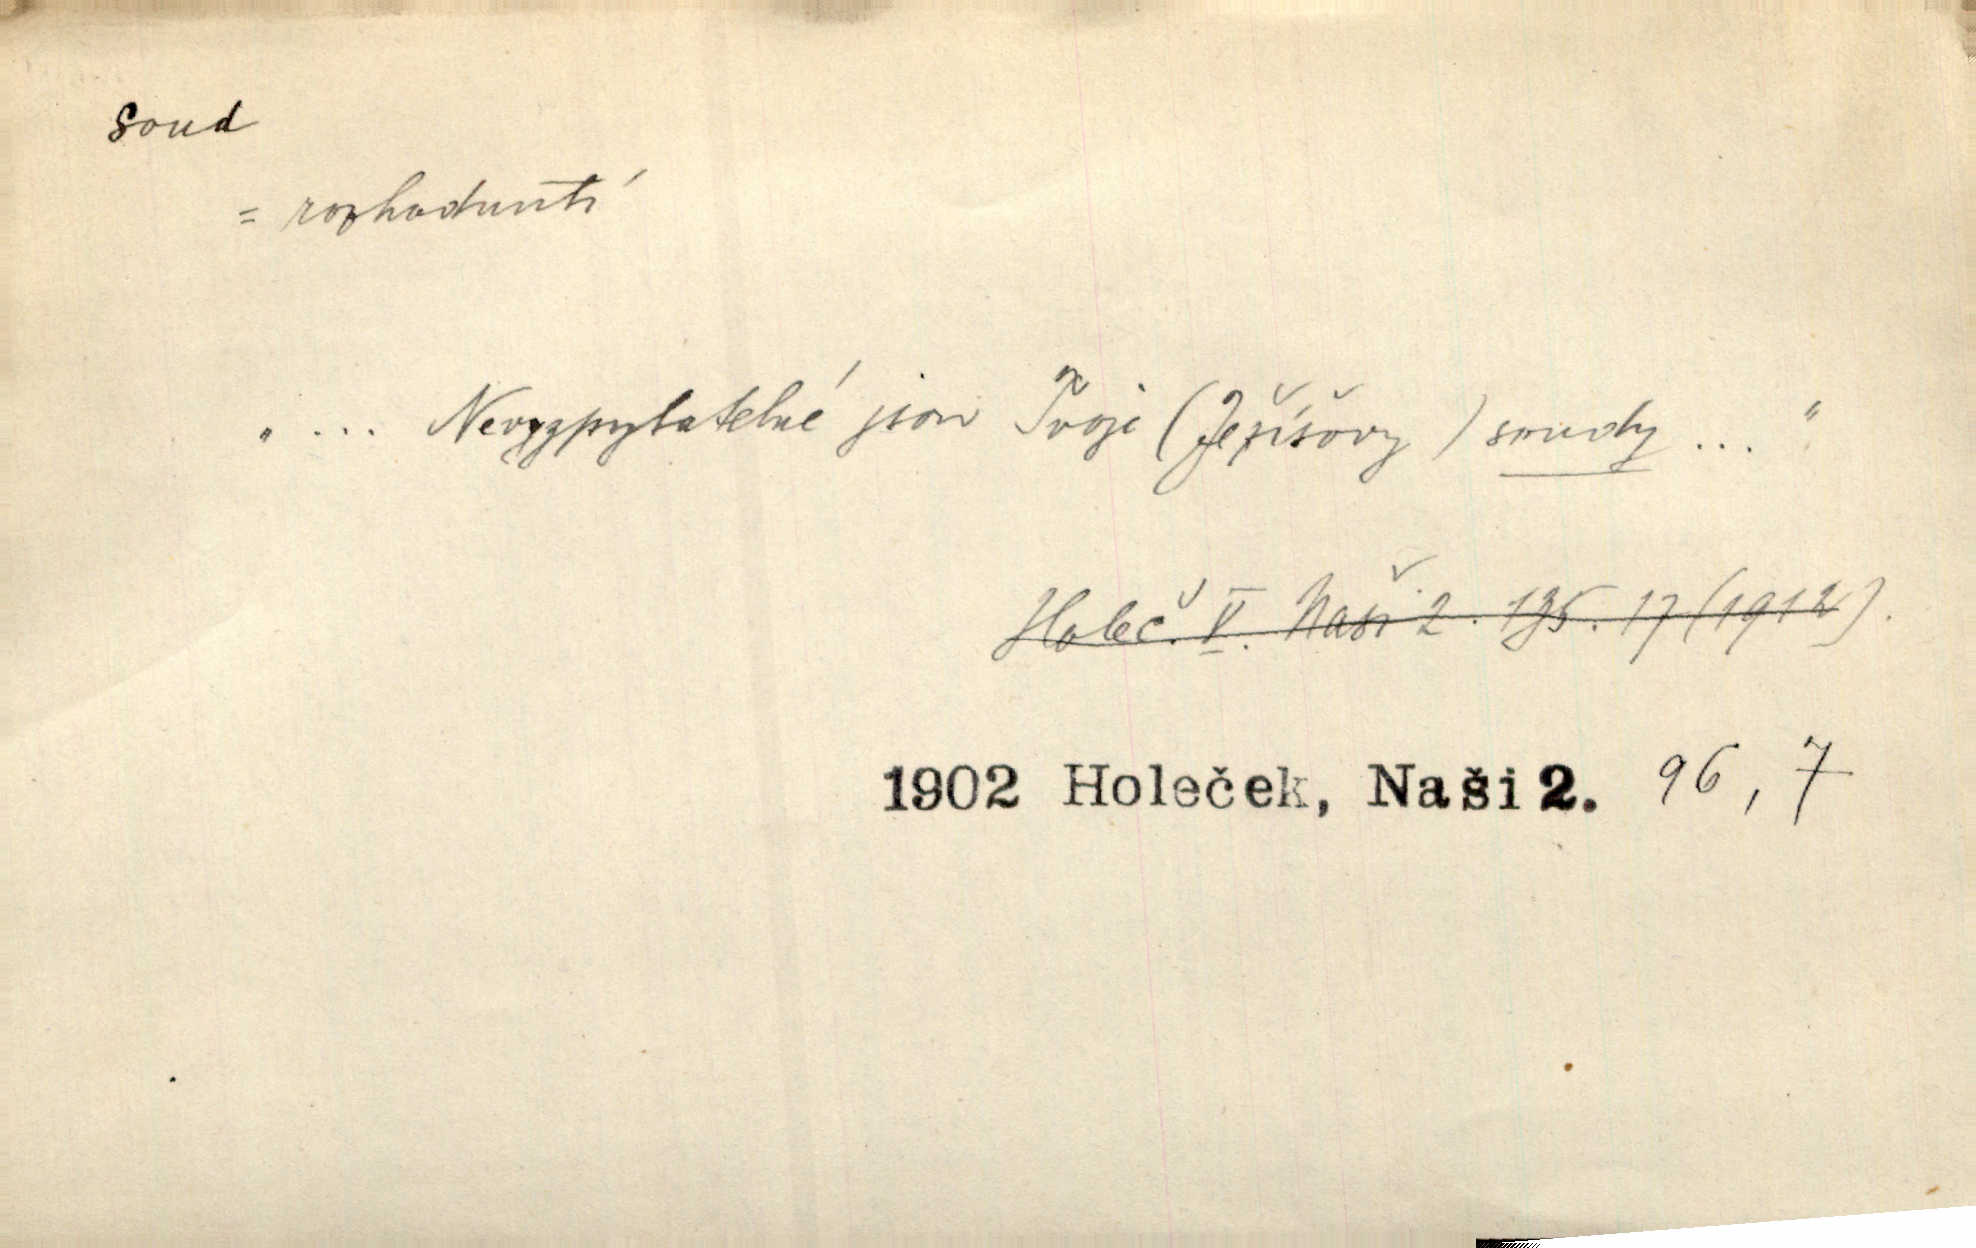 soud
= rozhodnutí
„ ... Nevyzpytatelné jsou Tvoje (Ježíšovy) soudy ... “
Holeč. V. Naši 2. 135. 17 (1912).
1902 Holeček, Naši 2. 96, 7